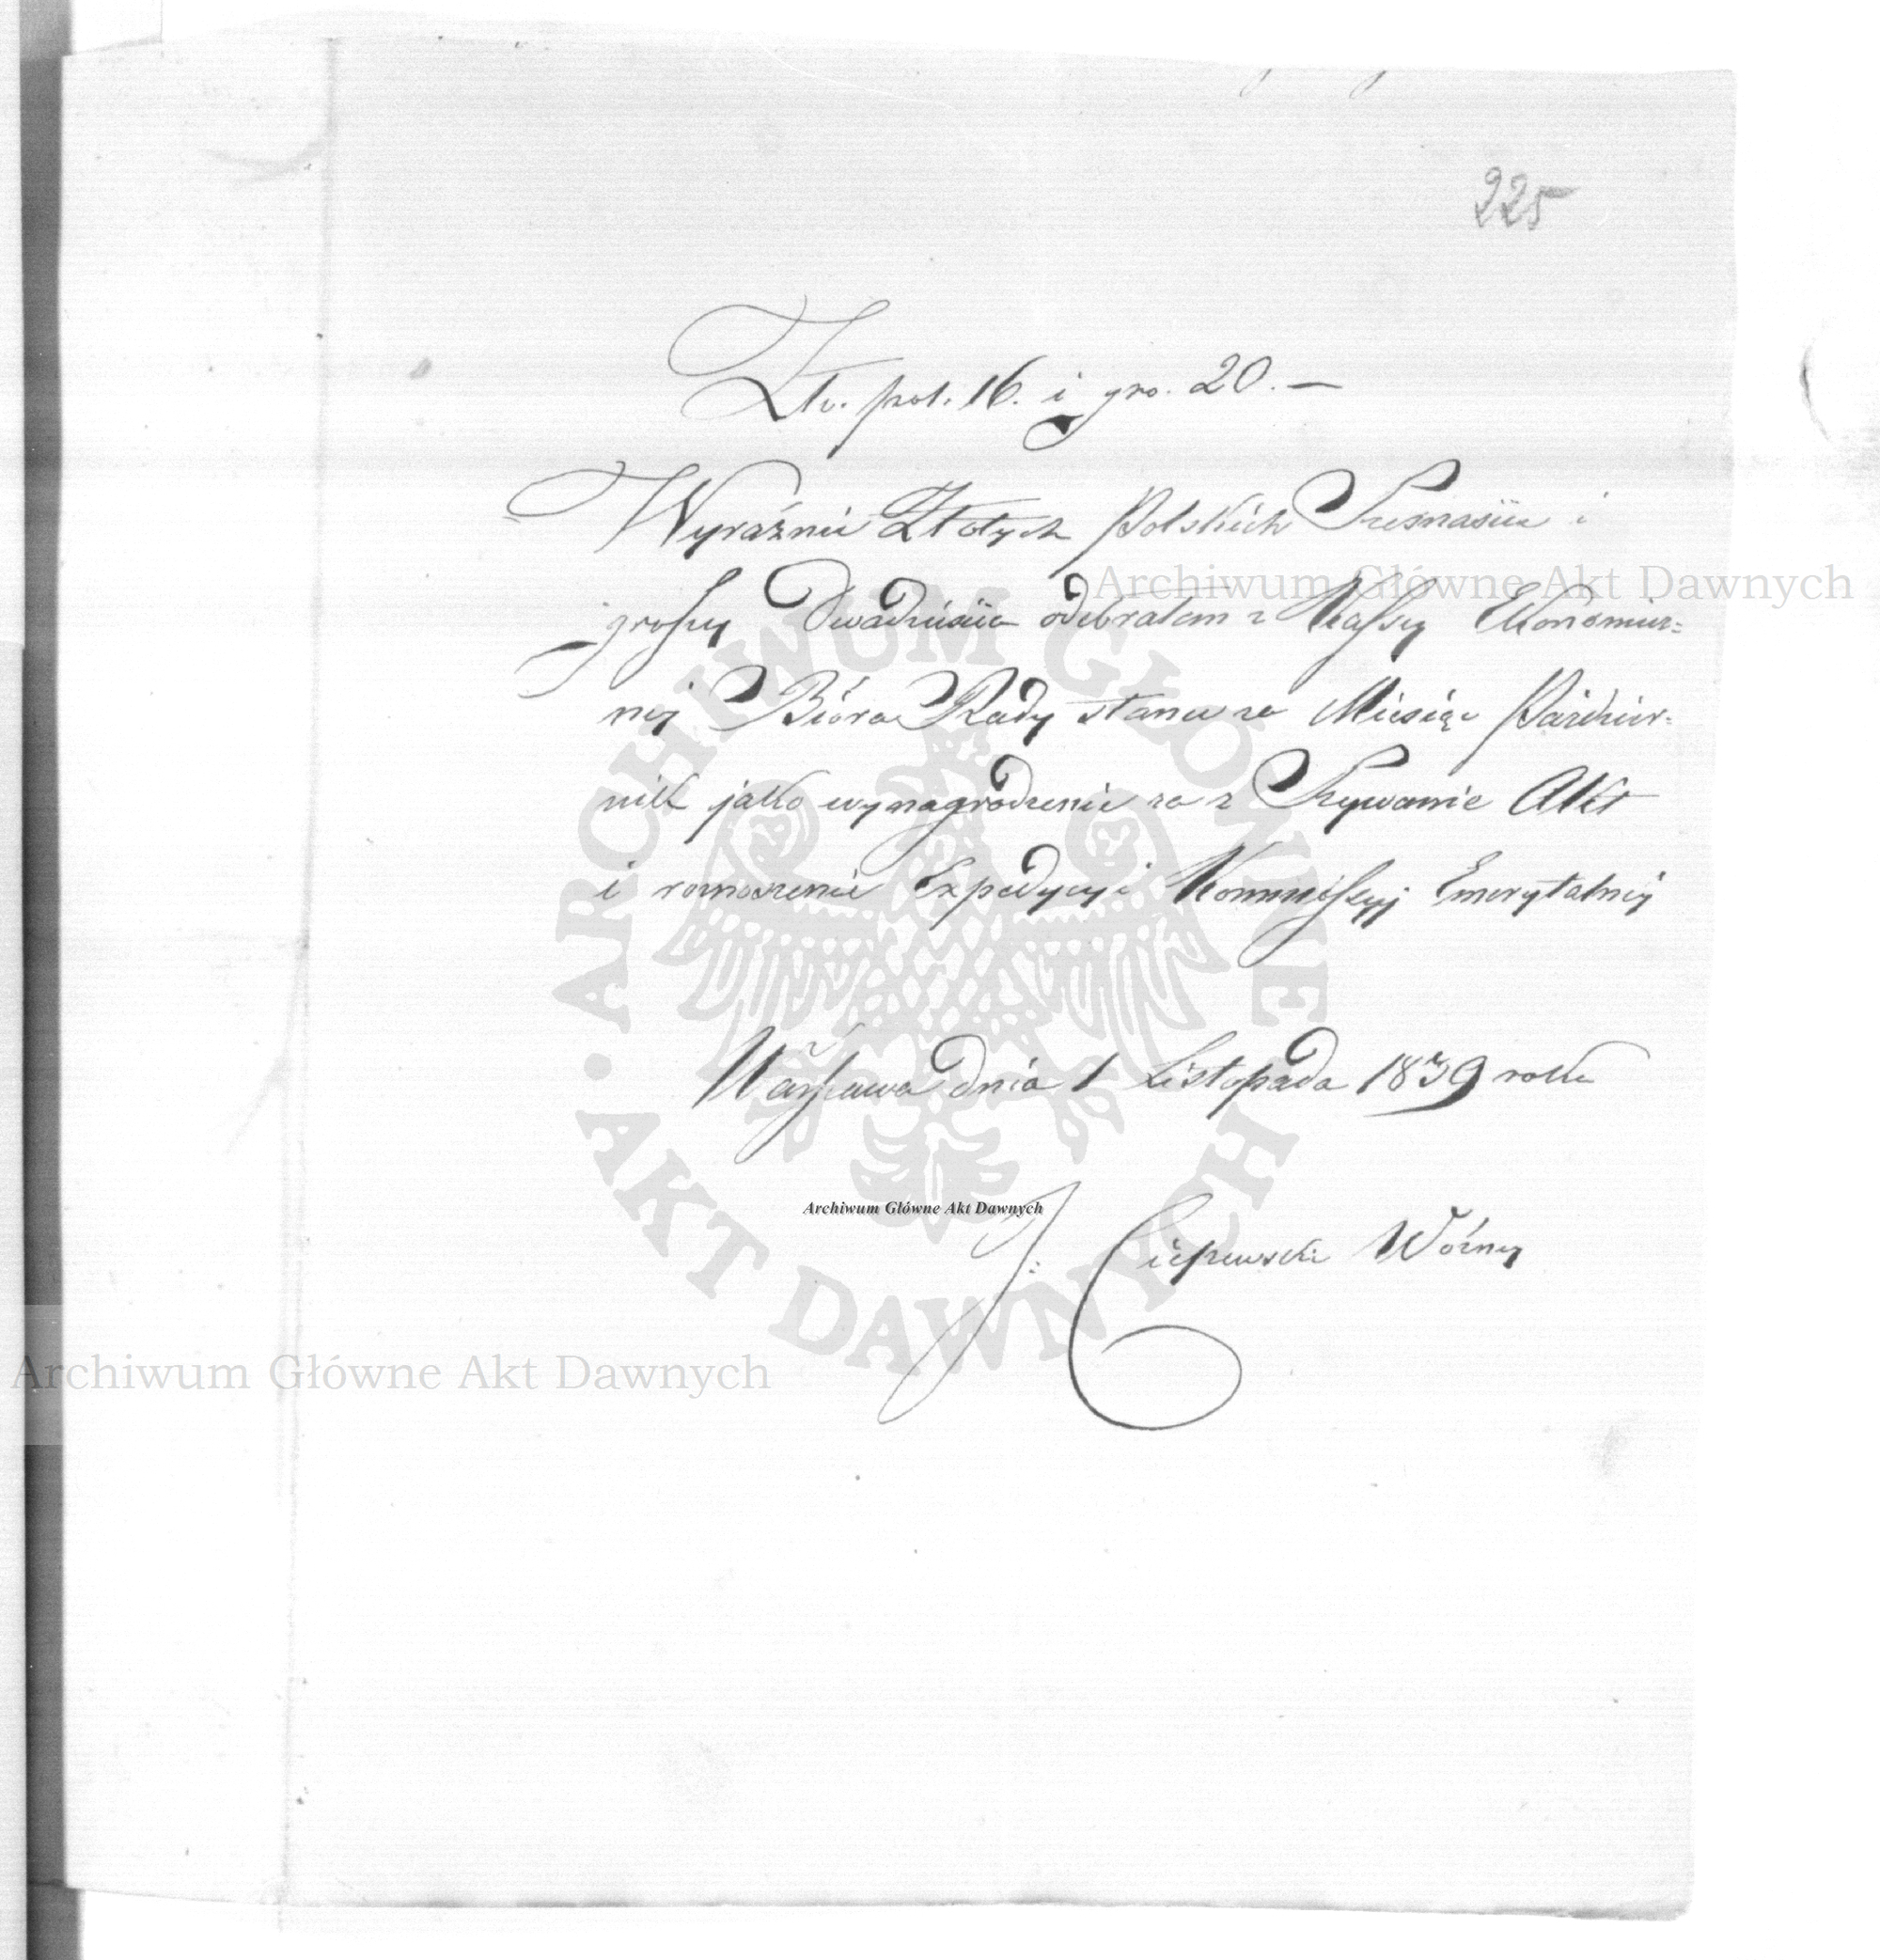 225
Zło. pol. 16. i gro. 20. —
Wyraźnie Złotych Polskich Szesnaście i
groszy Dwadzieścia odebrałem z Kassy Ekonomicz=
nej Bióra Rady stanu za Miesiąc Paździer=
nik jako wynagrodzenie za z Szywanie Akt
i roznoszenie Expedycyi Kommissyj Emerytalnej
Warszawa dnia 1 Listopada 1839 roku
J: Ciepewski Woźny
Archiwum Główne Akt Dawnych
Archiwum Główne Akt Dawnych
Archiwum Główne Akt Dawnych
• ARCHIWUM GŁÓWNE • AKT DAWNYCH